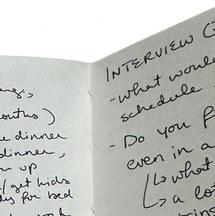 months)
e dinner
dinner,
n up
/get kids
dy for bed
INTERVIEW G
- what would
schedule
- Do you f
even in a
↳ what
↳ a lot